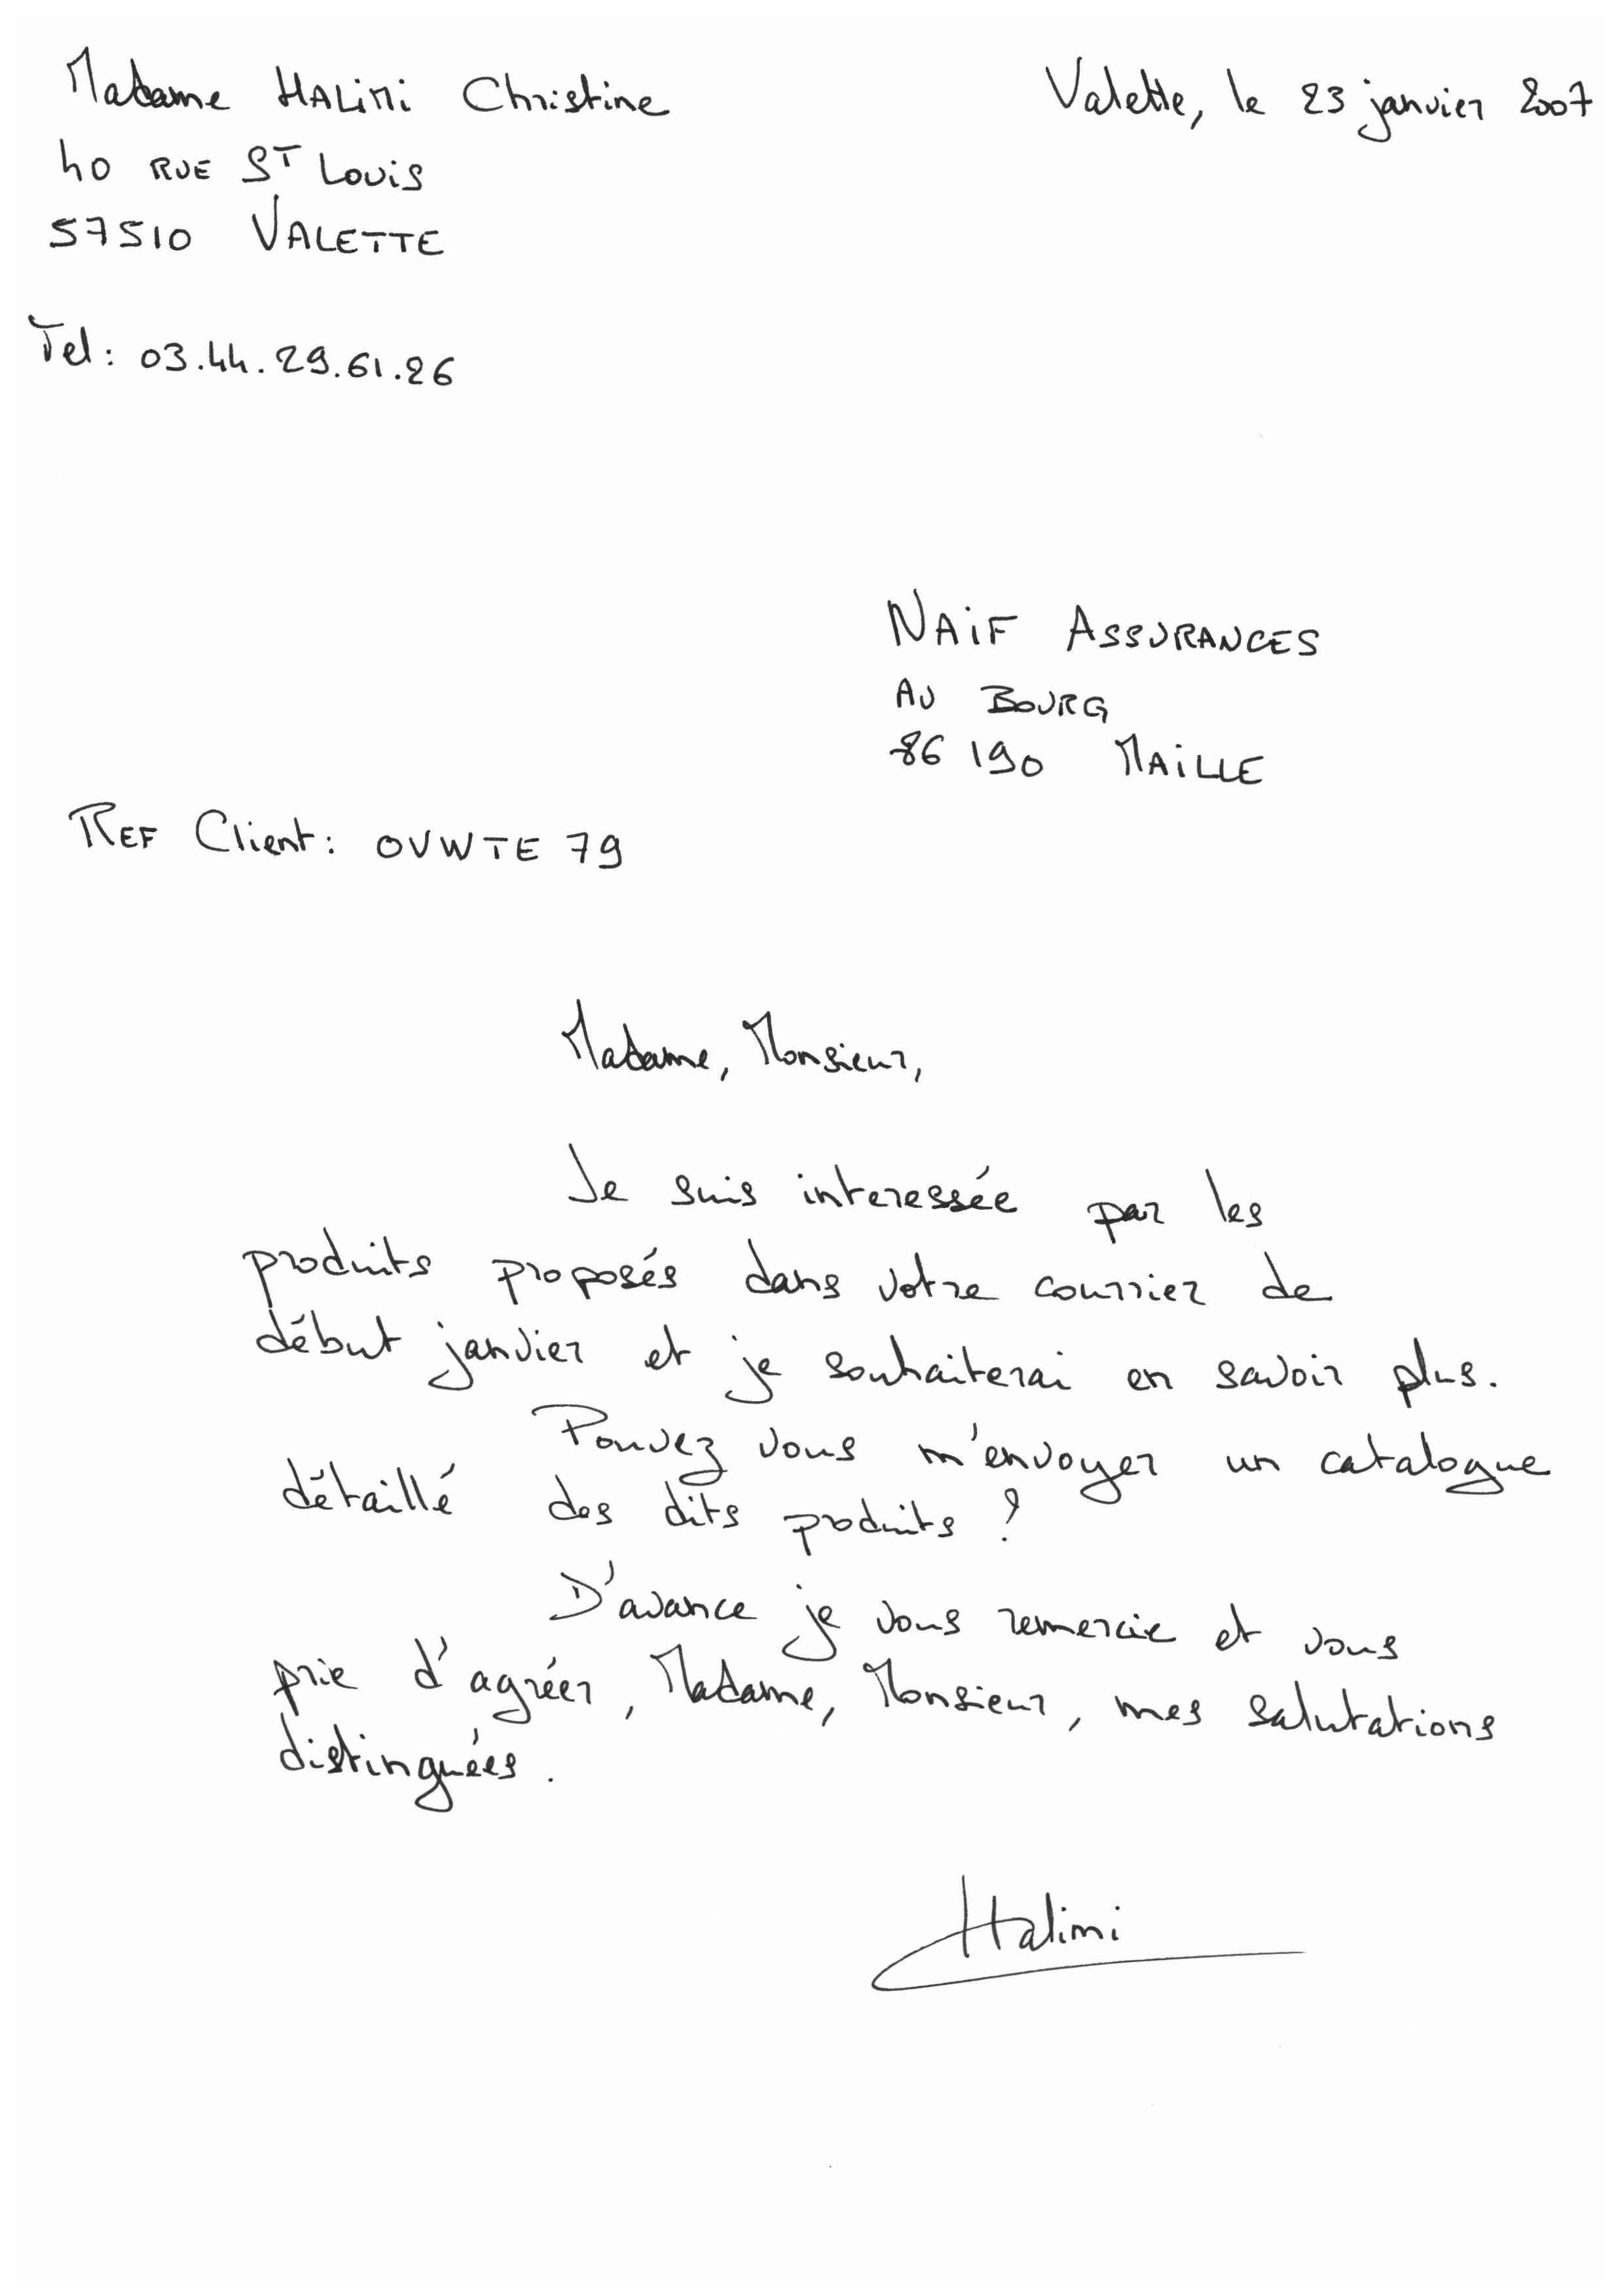 Madame HALIMI Christine
Valette, le 23 janvier 2007
40 RUE ST LOUIS
57510 VALETTE
Tel: 03.44.29.61.26
NAIF ASSURANCES
AU BOURG
86190 MAILLE
REF Client: OVWTE 79
Madame, Monsieur,
Je suis interessée par les
produits proposés dans votre courrier de
début janvier et je souhaiterai en savoir plus.
Pouvez vous m'envoyer un catalogue
détaillé des dits produits ?
D'avance je vous remercie et vous
prie d'agréer, Madame, Monsieur, mes salutations
distinguées.
Halimi